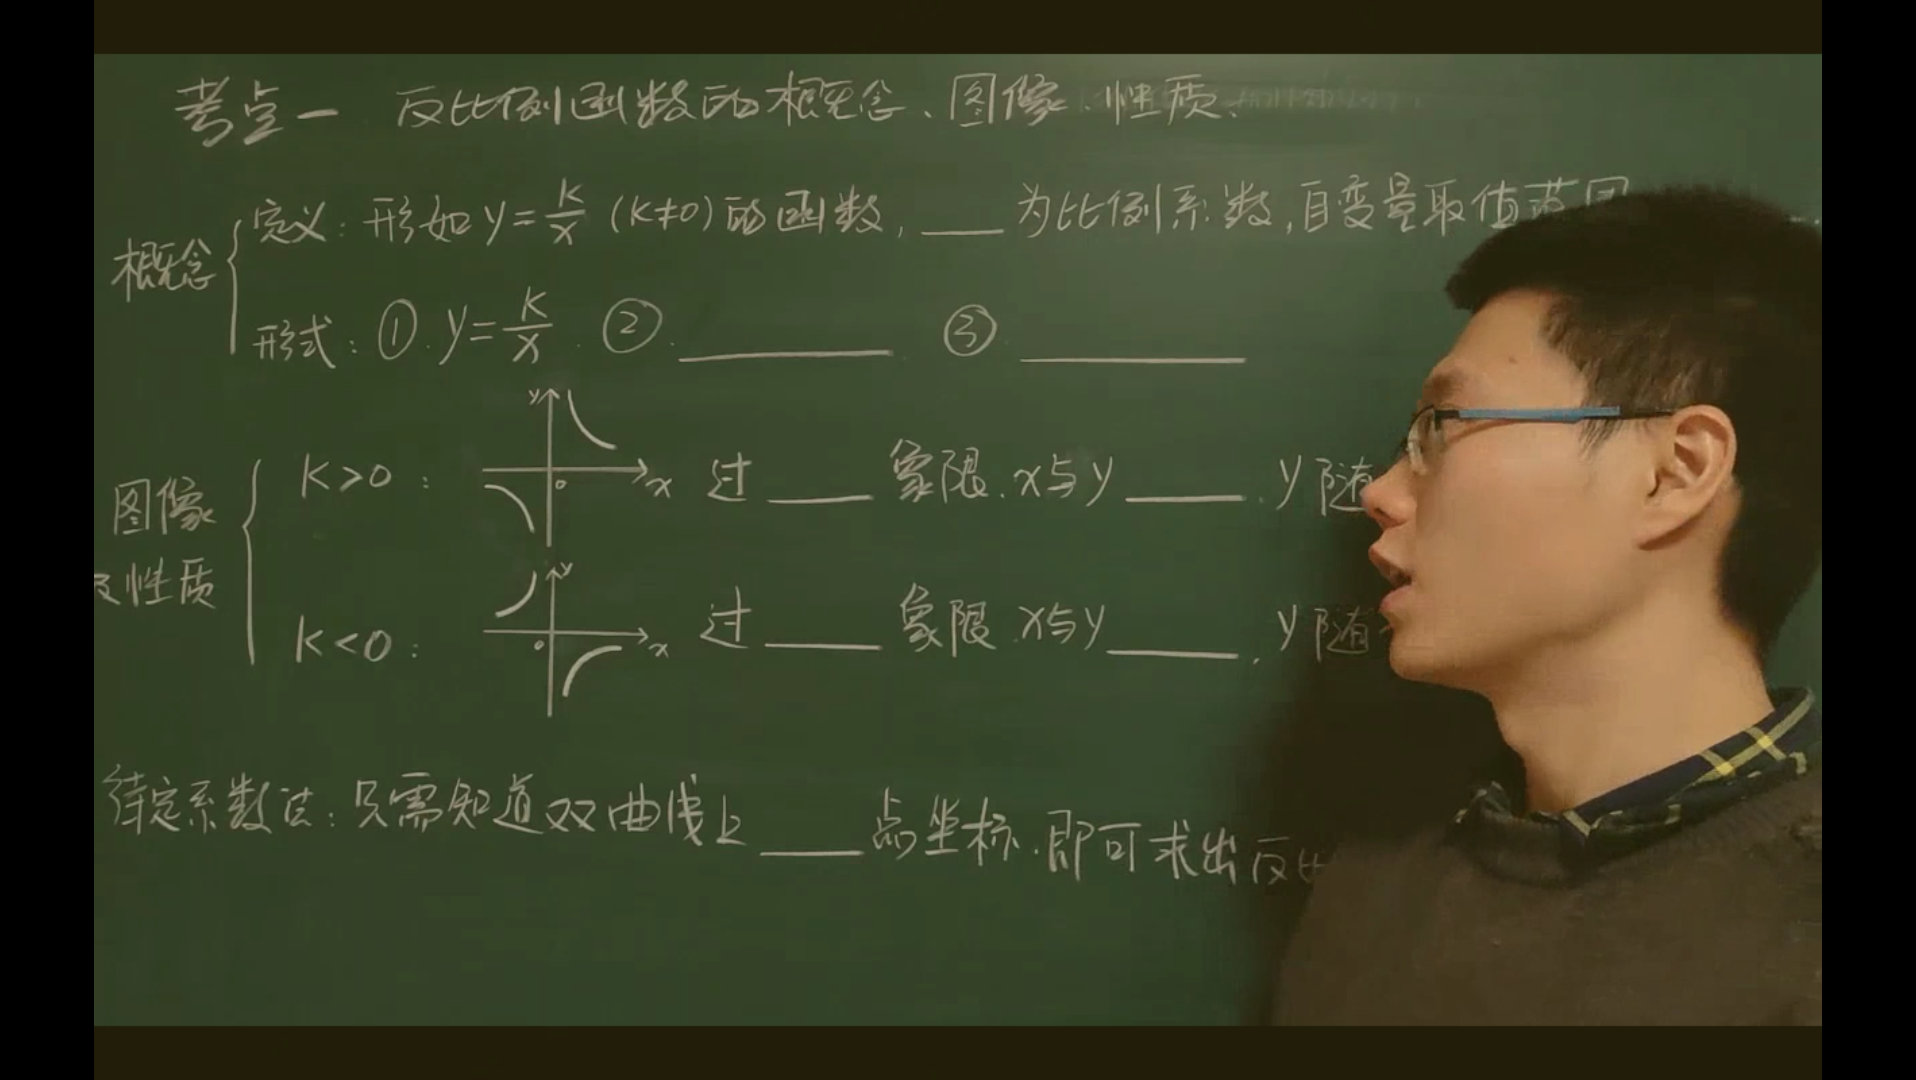 考点一 反比例函数的概念、图像、性质、
概念
定义：形如 y=k/x (k≠0)的函数，___为比例系数，自变量取值范围
形式：①.y=k/x . ②.______ ③______
图像
及性质
K>0： y x o 过___象限.x与y___.y随
K<0： y x o 过___象限.x与y___.y随
待定系数法：只需知道双曲线上___点坐标.即可求出反比